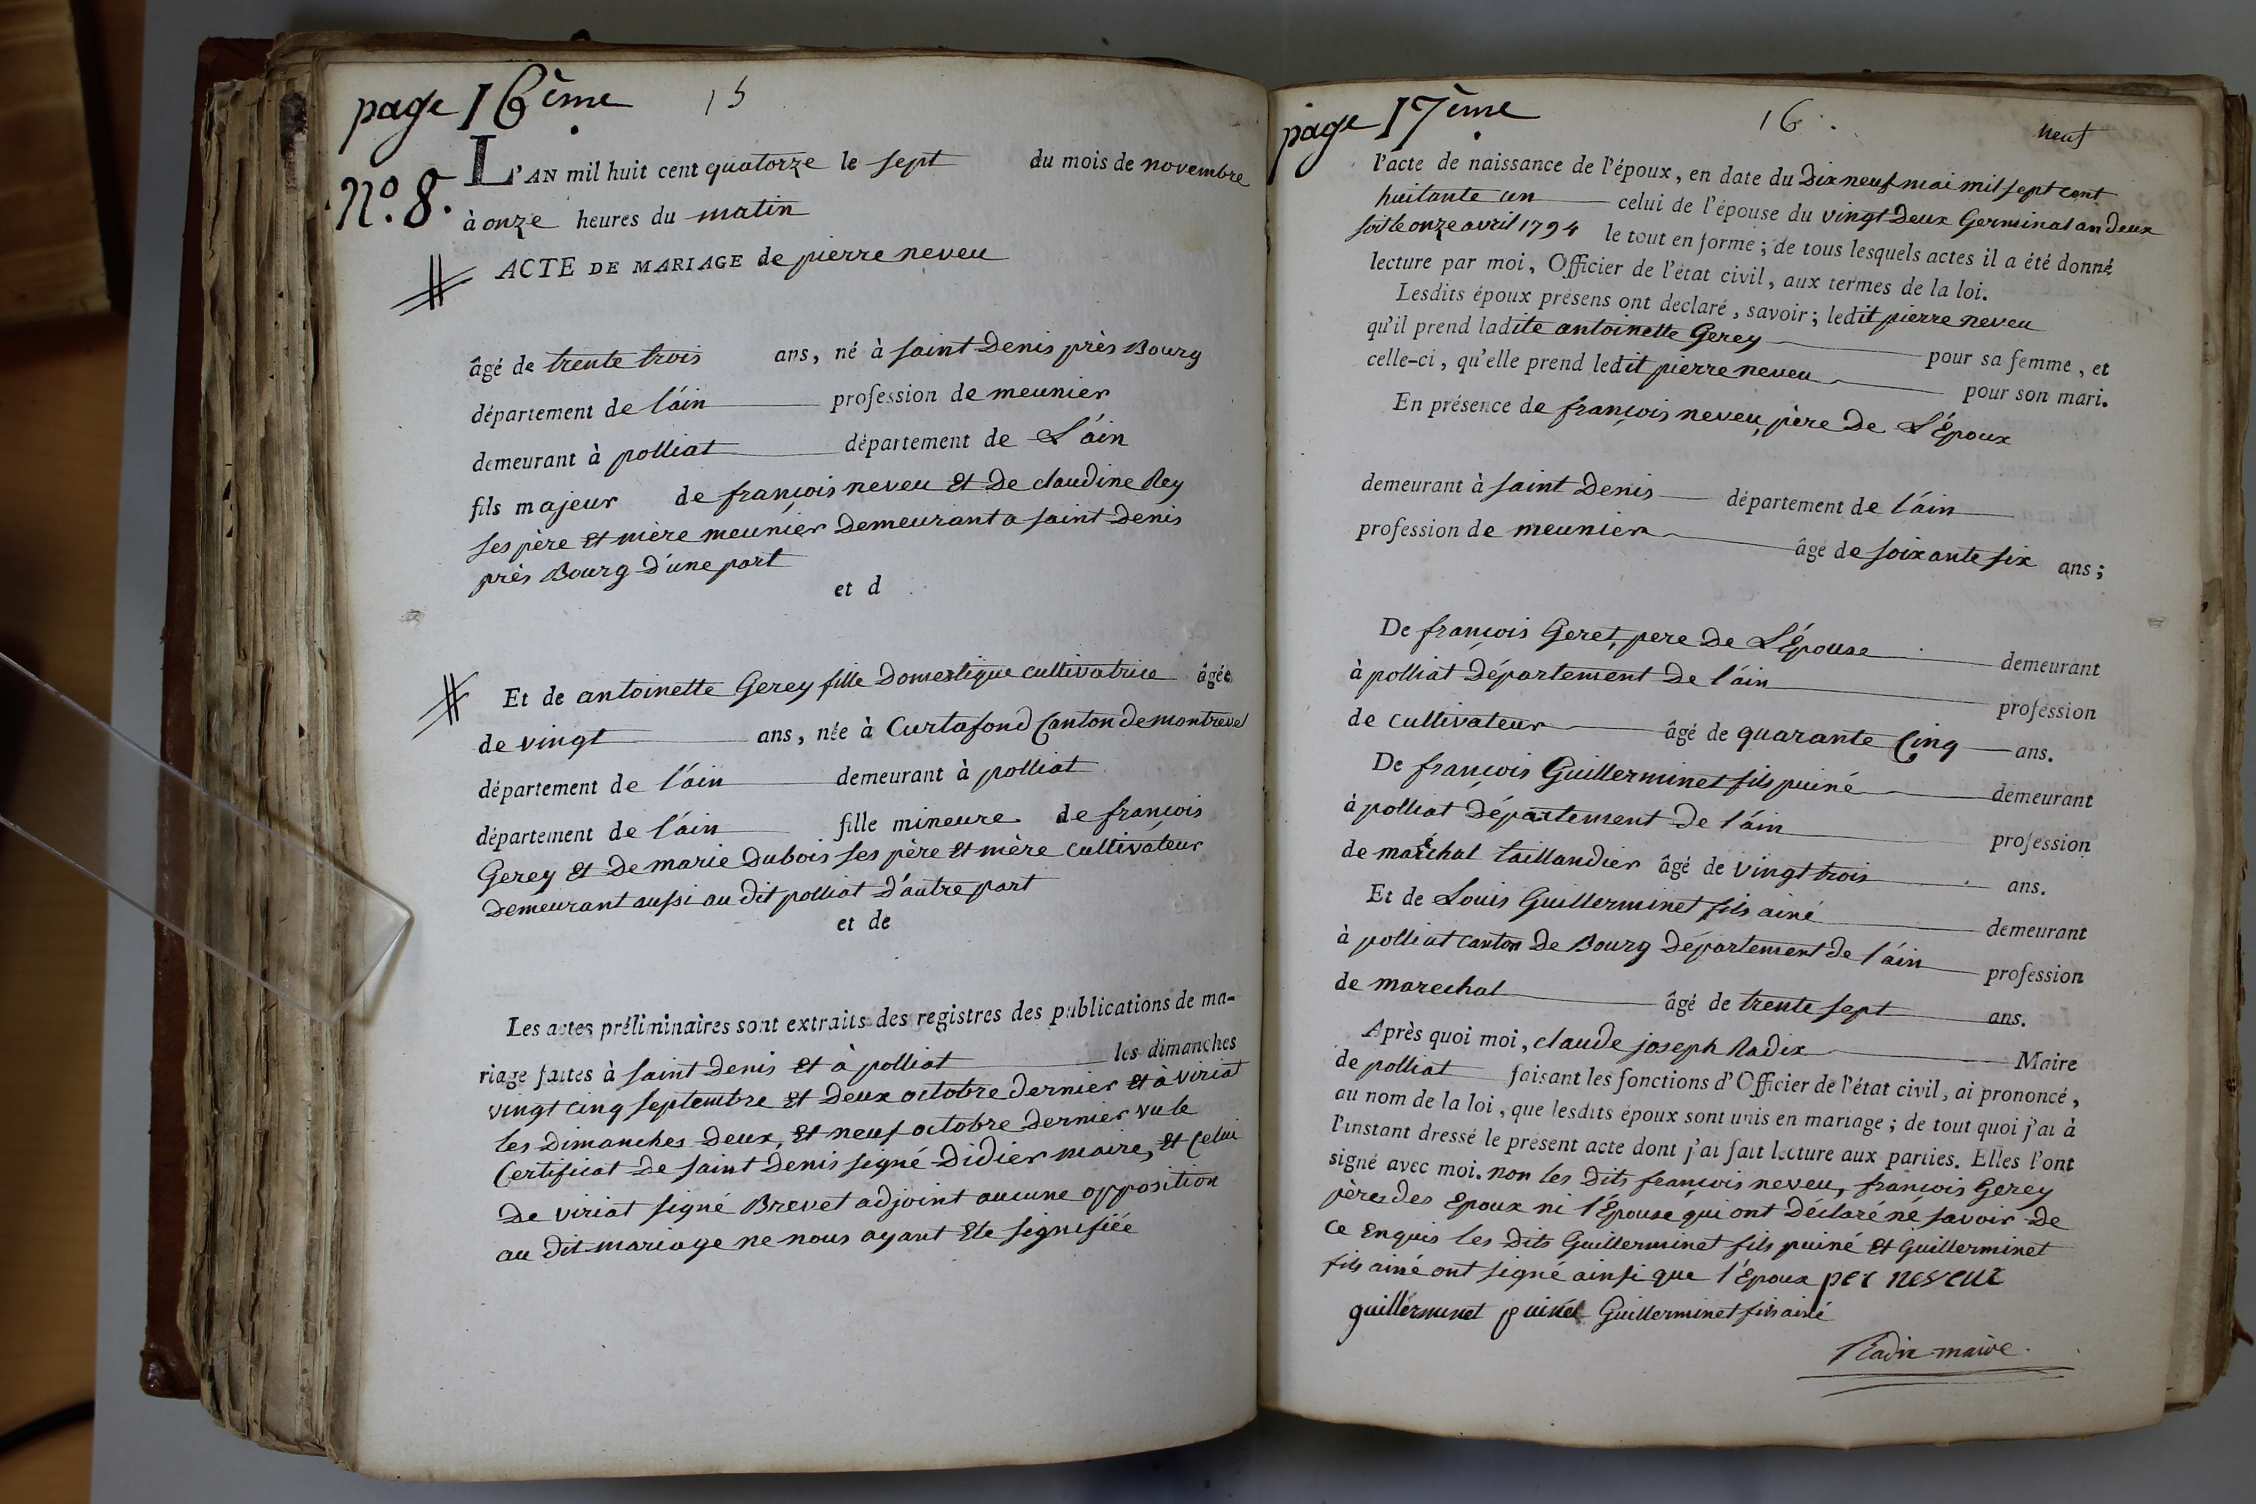 page 16ème 15
L'AN mil huit cent quatorze le sept du mois de novembre
N.o 8.
à onze heures du matin
ACTE DE MARIAGE de pierre neveu
âgé de trente trois ans, né à saint Denis près Bourg
département de l'ain profession de meunier
demeurant à polliat département de L'ain
fils majeur de françois neveu Et De claudine Rey
ses père Et mère meunier Demeurant a saint Denis
près Bourg D'une part
et d
Et de antoinette Gerey fille Domestique cultivatrice âgée
de vingt ans, née à Curtafond Canton de montrevel
département de l'ain demeurant à polliat
département de l'ain fille mineure de françois
Gerey Et De marie Dubois ses père Et mère cultivateur
Demeurant aussi au Dit polliat D'autre part
et de
Les actes préliminaires sont extraits des registres des publications de ma-
riage faites à saint Denis Et à polliat les dimanches
vingt cinq septembre Et Deux octobre Dernier Et à viriat
les Dimanches Deux, Et neuf octobre Dernier vu le
Certificat De saint Denis signé Didier maire, Et Celui
De viriat signé Brevet adjoint aucune opposition
au Dit mariage ne nous ayant Ete signifiée
page 17ème 16. neuf
l'acte de naissance de l'époux, en date du Dix neuf mai mil sept cent
huitante un celui de l'épouse du vingt Deux Germinal an Deux
soit le onze avril 1794 le tout en forme; de tous lesquels actes il a été donné
lecture par moi, Officier de l'état civil, aux termes de la loi.
Lesdits époux présens ont declaré, savoir; ledit pierre neveu
qu'il prend ladite antoinette Gerey pour sa femme, et
celle-ci, qu'elle prend ledit pierre neveu pour son mari.
En présence de françois neveu, père De L'Époux
demeurant à saint Denis département de l'ain
profession de meunier âgé de soixante six ans;
De françois Geret, pere De L'Épouse demeurant
à polliat Département De l'ain profession
de cultivateur âgé de quarante Cinq ans.
De françois Guillerminet fils puiné demeurant
à polliat Département De l'ain profession
de maréchal taillandier âgé de vingt trois ans.
Et de Louis Guillerminet fils ainé demeurant
à polliat canton De Bourg Département de l'ain profession
de marechal âgé de trente sept ans.
Après quoi moi, claude joseph Radix Maire
de polliat faisant les fonctions d'Officier de l'état civil, ai prononcé,
au nom de la loi, que lesdits époux sont unis en mariage; de tout quoi j'ai à
l'instant dressé le présent acte dont j'ai fait lecture aux parties. Elles l'ont
signé avec moi. non les dits françois neveu, françois Gerey
pères des Epoux ni l'Épouse qui ont Déclaré ne savoir De
ce Enquis les Dits Guillerminet fils puiné Et Guillerminet
fils ainé ont signé ainsi que l'Epoux per neveur
guillerminet puiné Guillerminet fils ainé
Radix maire.